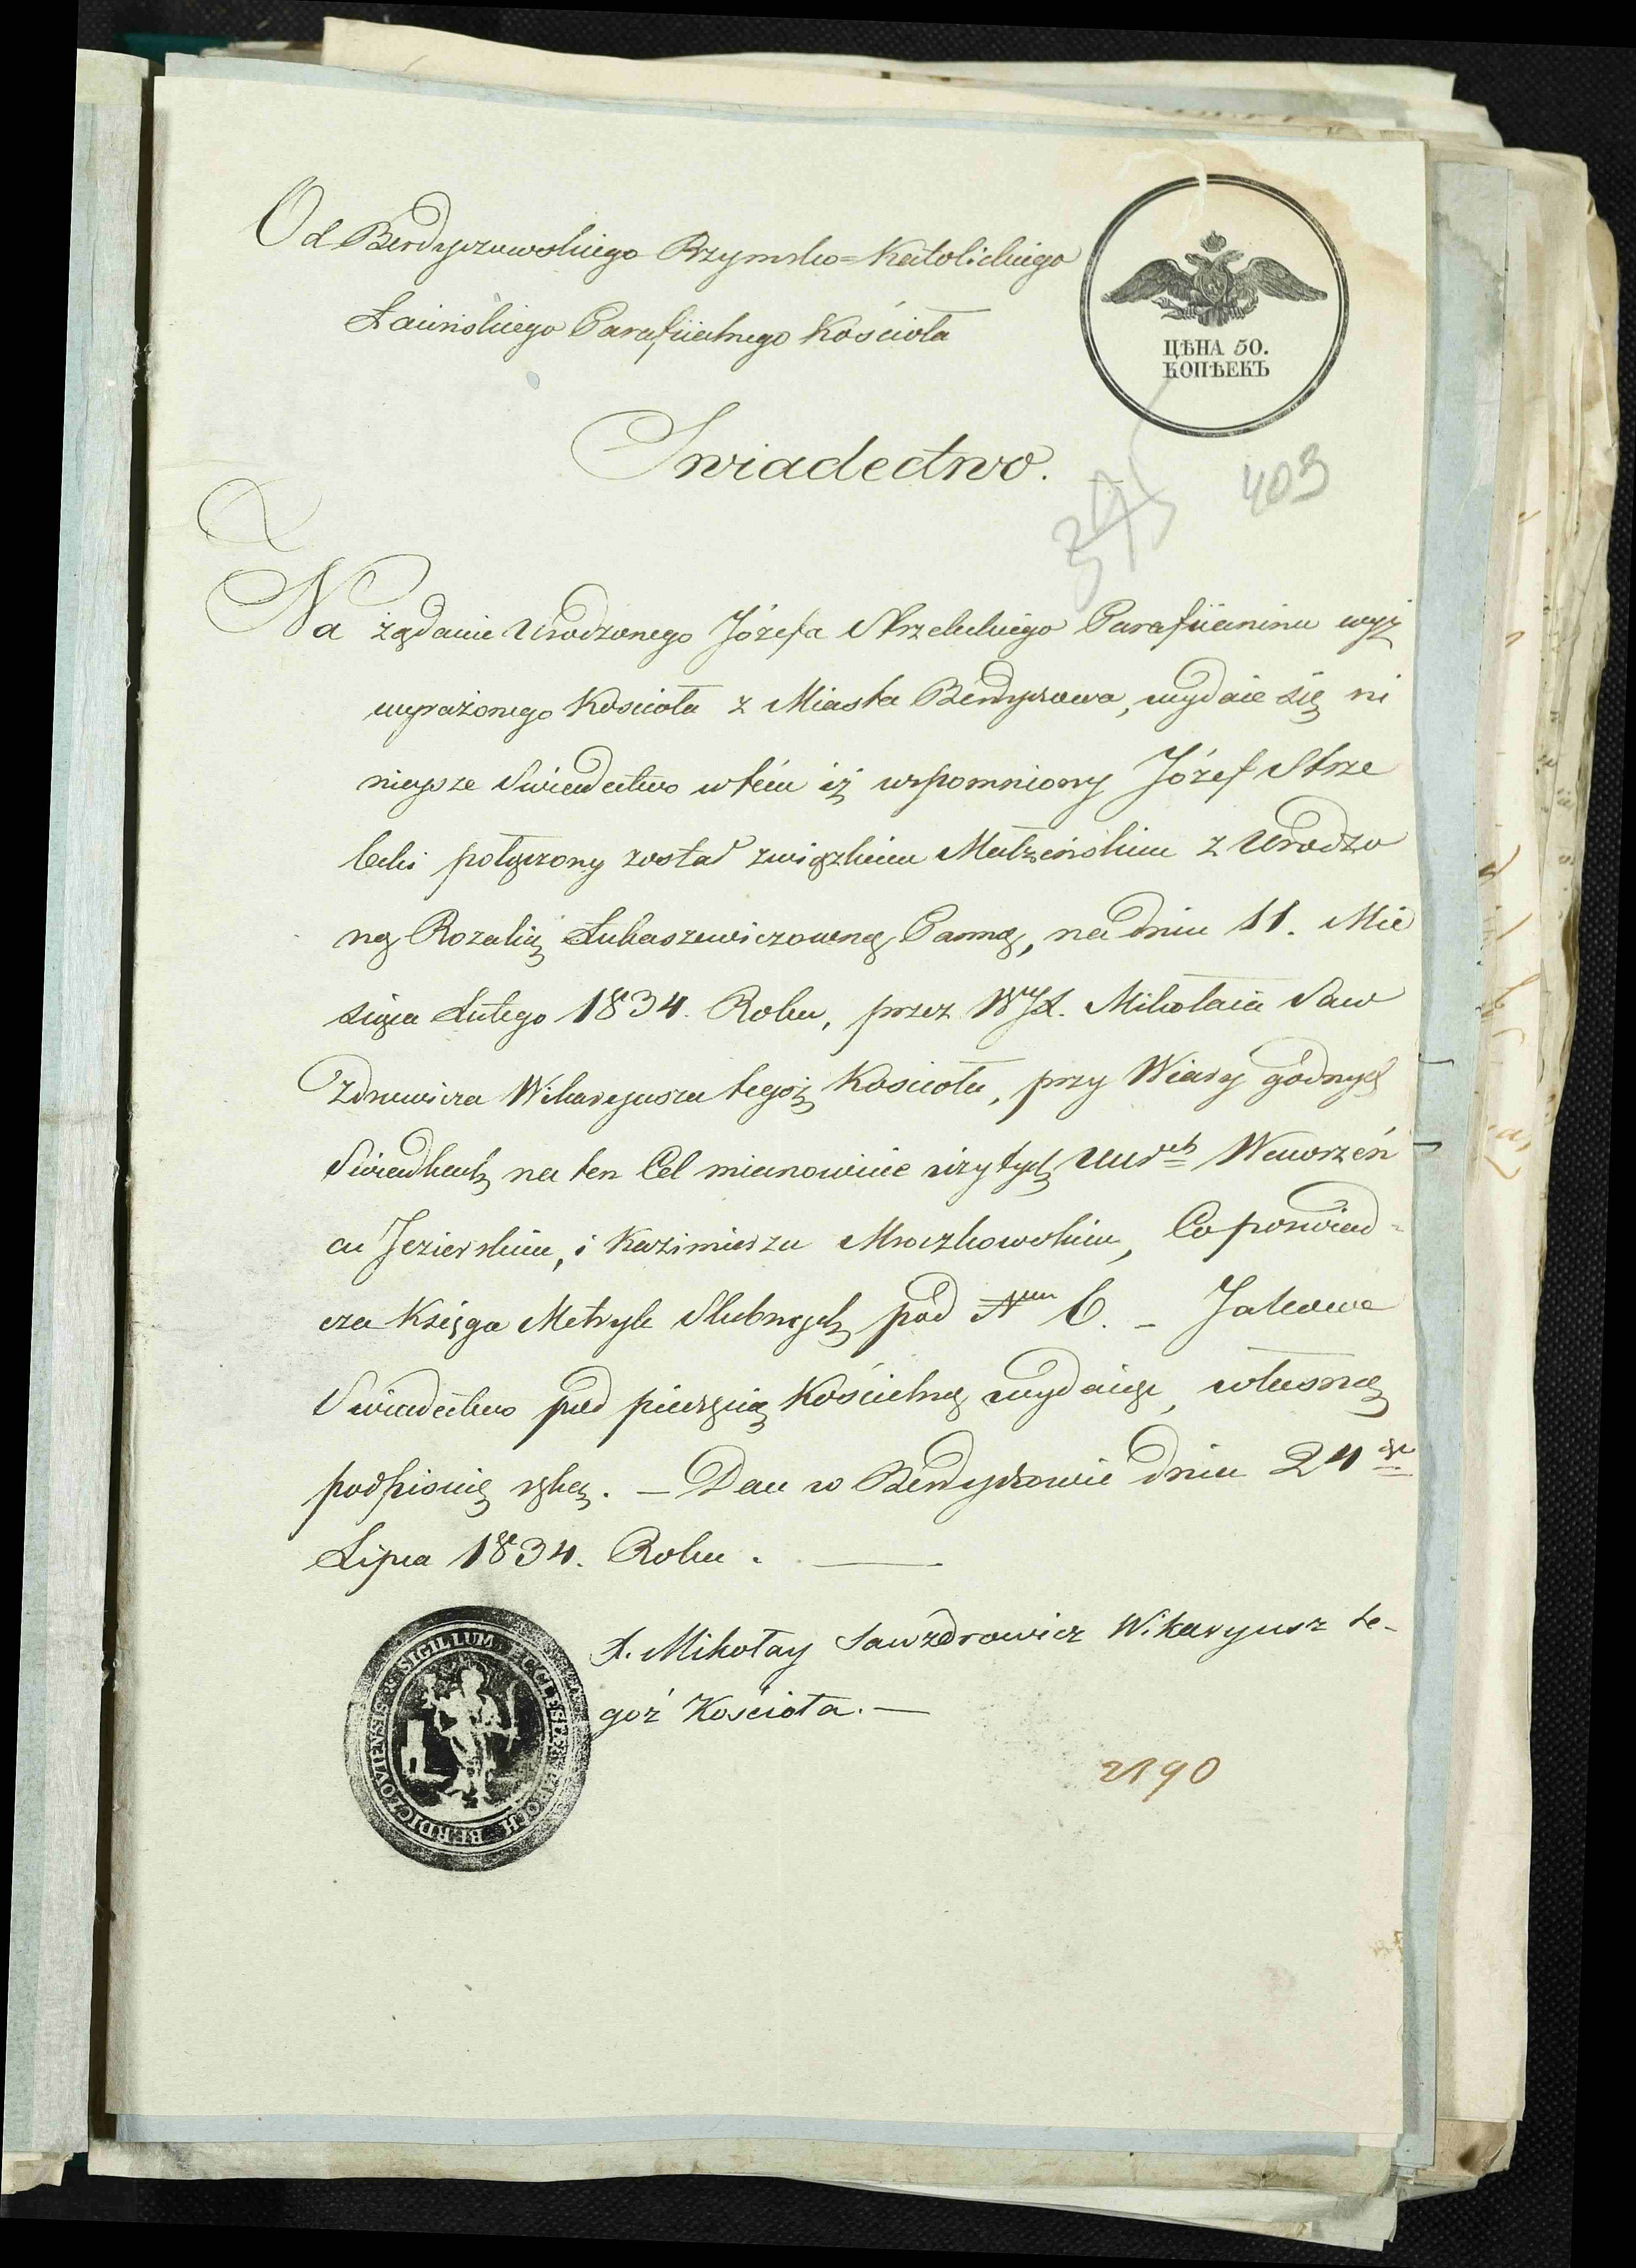 Od Berdyczowskiego Rzymsko=Katolickiego
Łacińskiego Parafiialnego Kościoła
ЦѢНА 50.
КОПѢЕКЪ
Swiadectwo.
409
Na żądanie Urodzonego Józefa Strzeleckiego Parafiianina wyż
wyrażonego Kościoła z Miasta Berdyczowa, wydaie się ni
nieysze Swiadectwo w tém iż wspomniony Józef Strze
lecki połączony został związkiem Małżeńskim z Urodzo
ną Rozalią Łukaszewiczowną Panną, na dniu 11. Mie
siąca Lutego 1834. Roku, przez WJX. Mikołaia Saw
zdrowicza Wikaryusza tegoż Kościoła, przy Wiary godnych
Swiadkach na ten Cel mianowicie użytych Uur=ch Wawrzeń
cu Jezierskim, i Kazimierzu Mroczkowskim, Co poswiad=
cza Księga Metryk Slubnych pod N 6. _ Jakowe
Swiadectwo pod pieczęcią Kościelną wydaiąc, własną
podpisuię ręką. — Dan w Berdyczowie dnia 24 go
Lipca 1834. Roku. —
X. Mikołay Sawzdrowicz Wikaryusz te-
goż Kościoła. —
SIGILLUM ECCLESIÆ PAROCH BERDICZOVIENSIS
2190